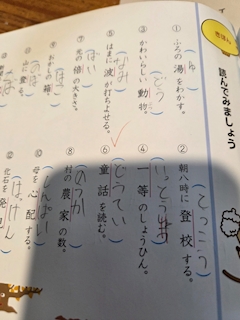 きほん
読んでみましょう
① ふろの湯をわかす。
ゆ
② 朝八時に登校する。
とっこう
③ かわいらしい動物。
どう
④ 一等のしょうひん。
いっとう
⑤ はまに波が打ちよせる。
なみ
⑥ 童話を読む。
⑦ 元の倍の大きさ。
ばい
⑧ 村の農家の数。
のうか
おかしの箱。
はこ
⑩ 母を心配する。
しんぱい
のぼ
⑫ 化石を発
はっけん